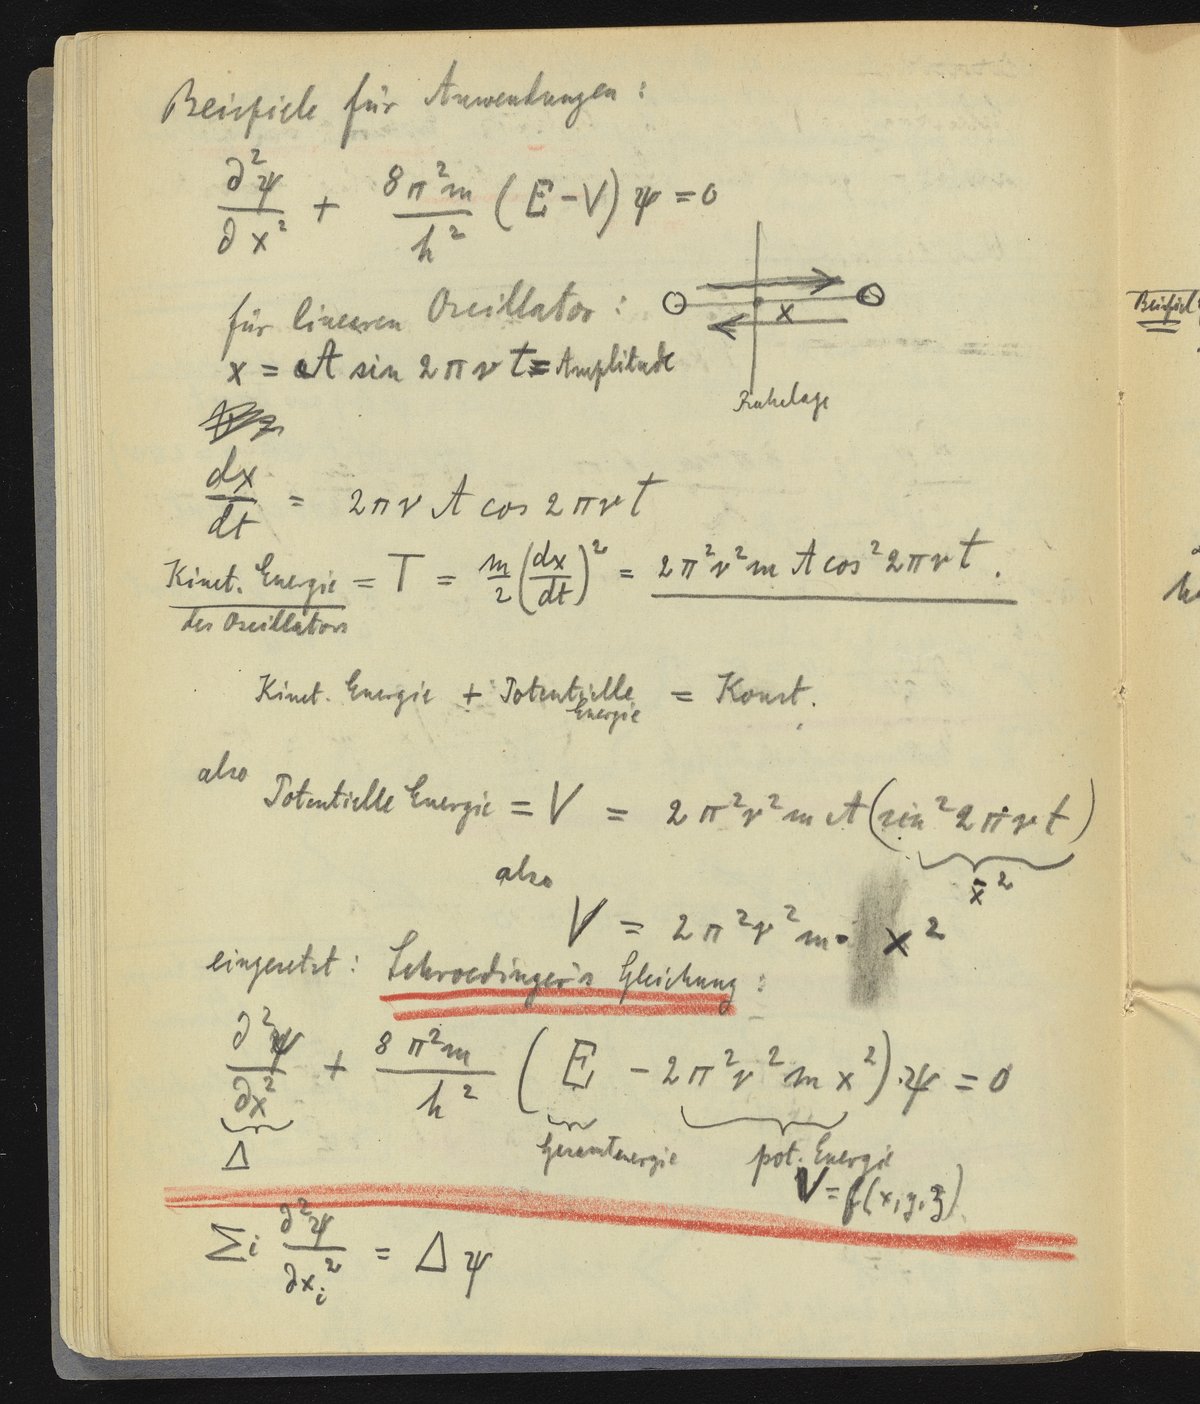 Beispiele für Anwendungen:
∂²ψ/∂x² + 8π²m/h² (E − V) ψ = 0
für linearen Oscillator:
x
Ruhelage
x = A sin 2πνt = Amplitude
dx/dt = 2πν A cos 2πνt
Kinet. Energie = T = m/2 (dx/dt)² = 2π²ν²m A cos² 2πνt.
des Oscillators
Kinet. Energie + Potentielle Energie = Konst.
also Potentielle Energie = V = 2π²ν²m A (sin² 2πνt)
x²
also
V = 2π²ν²m · x²
eingesetzt: Schroedinger's Gleichung:
∂²ψ/∂x² + 8π²m/h² (E − 2π²ν²m x²) · ψ = 0
Δ Gesamtenergie pot. Energie
V = f(x, y, z)
Σi ∂²ψ/∂xi² = Δψ
Beispiel